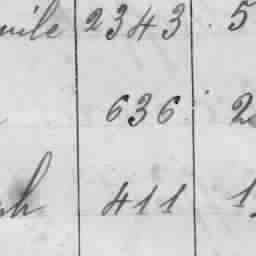 vile 2343 5
636 2
h 411 1